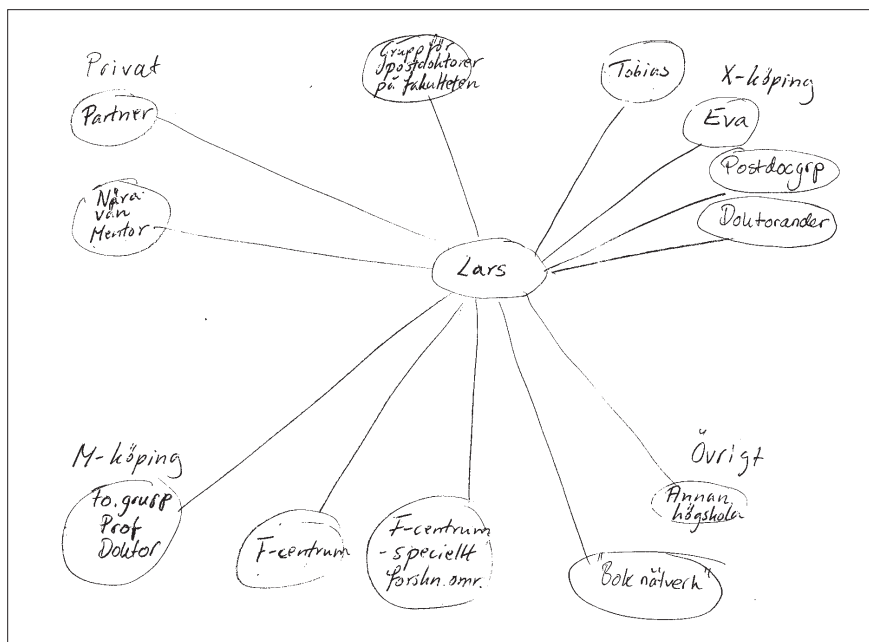 Privat
Partner
Nära
vän
Mentor
Grupp för
postdoktorer
på fakulteten
Tobias
X-köping
Eva
Postdocgrp
Doktorander
Lars
M-köping
Fo.grupp
Prof
Doktor
F-centrum
F-centrum
-speciellt
forskn.omr.
"Bok nätverk"
Övrigt
Annan
högskola